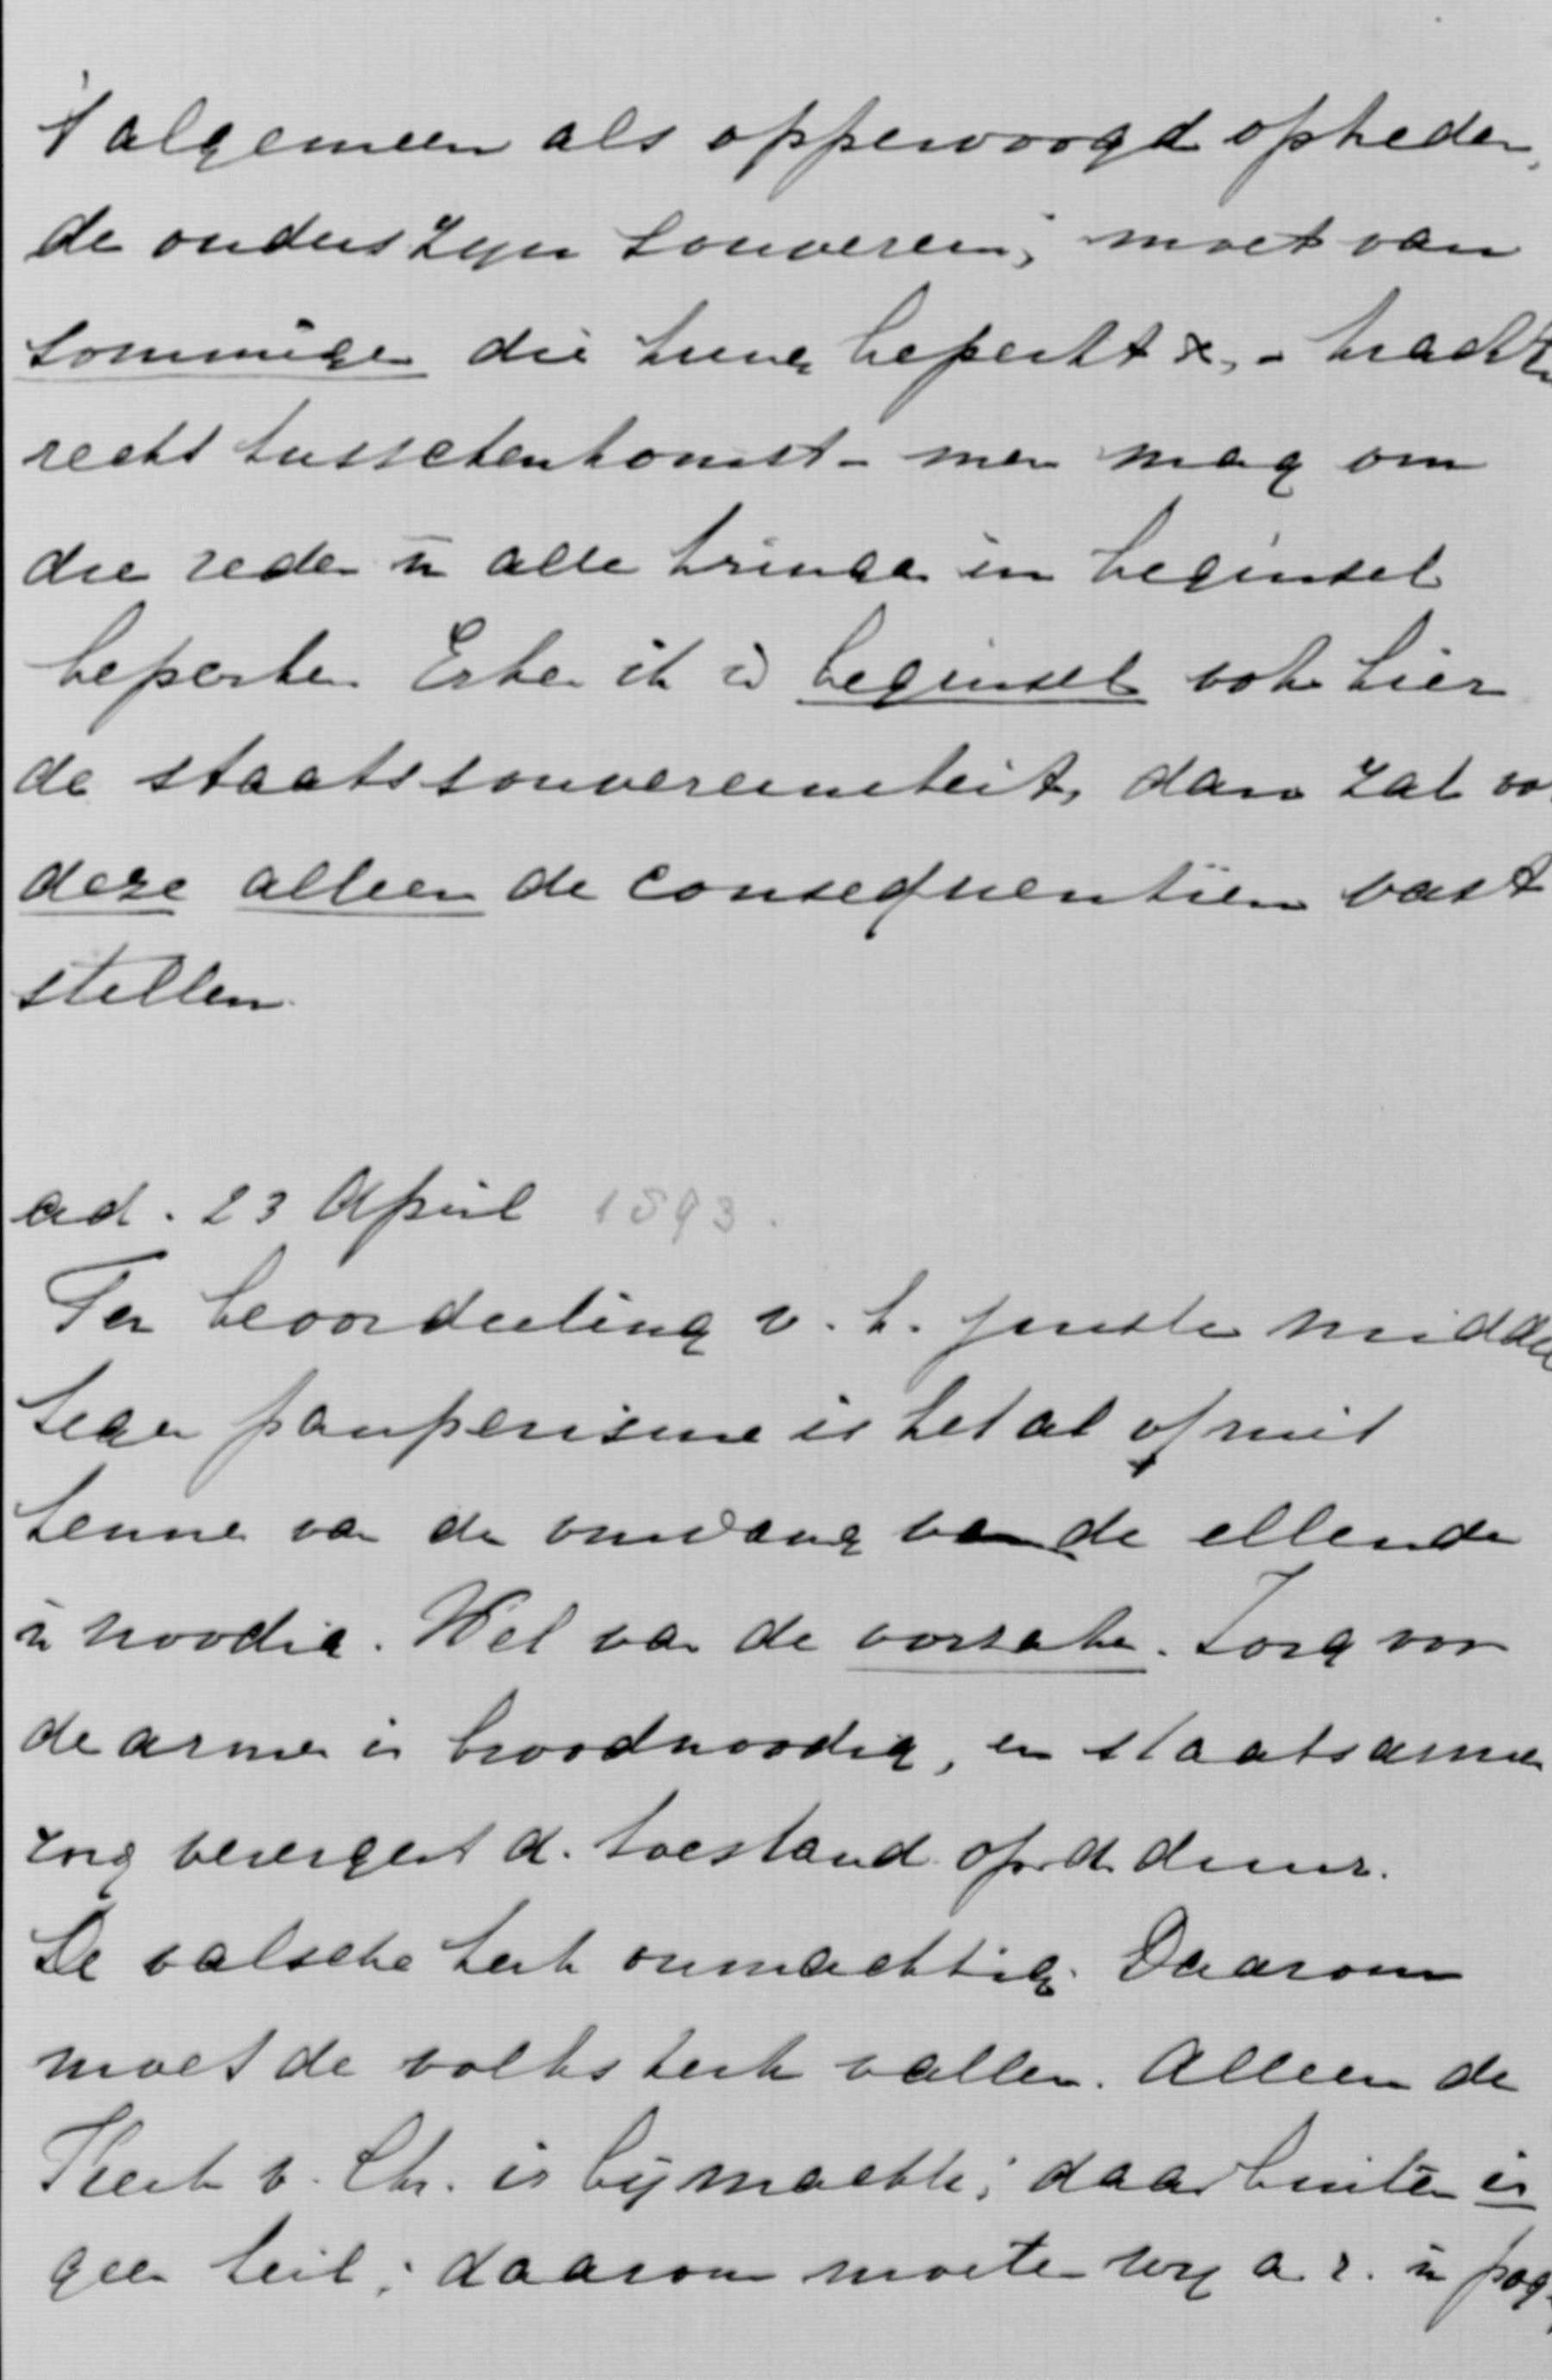 't algemeen als oppervoogd optreden,
de ouders zyn souverein; moet van
sommigen die kring beperkt x, - krachtens
recht tusschenkomst - men mag om
die reden n alle kringen in beginsel
beperken Erken ik i/ beginsel ook hier
de staatssouvereiniteit, dan zal oo
deze alleen de consequentiën vast
stellen.
ad. 23 April 1893.
Ter beoordeeling v. h. juiste middel
tegen pauperisme is het al of niet
kennen van de omvang van de ellende
n noodig. Wel van de oorzaken. Zorg voor
de armen is broodnoodig, en staatsarmen
zorg verergert d. toestand op d. duur.
De valsche kerk onmachtig. Daarom
moet de volkskerk vallen. Alleen de
Kerk v. Chr. is by machte; daarbuiten is
geen heil; daarom moeten wy a. r. n pog